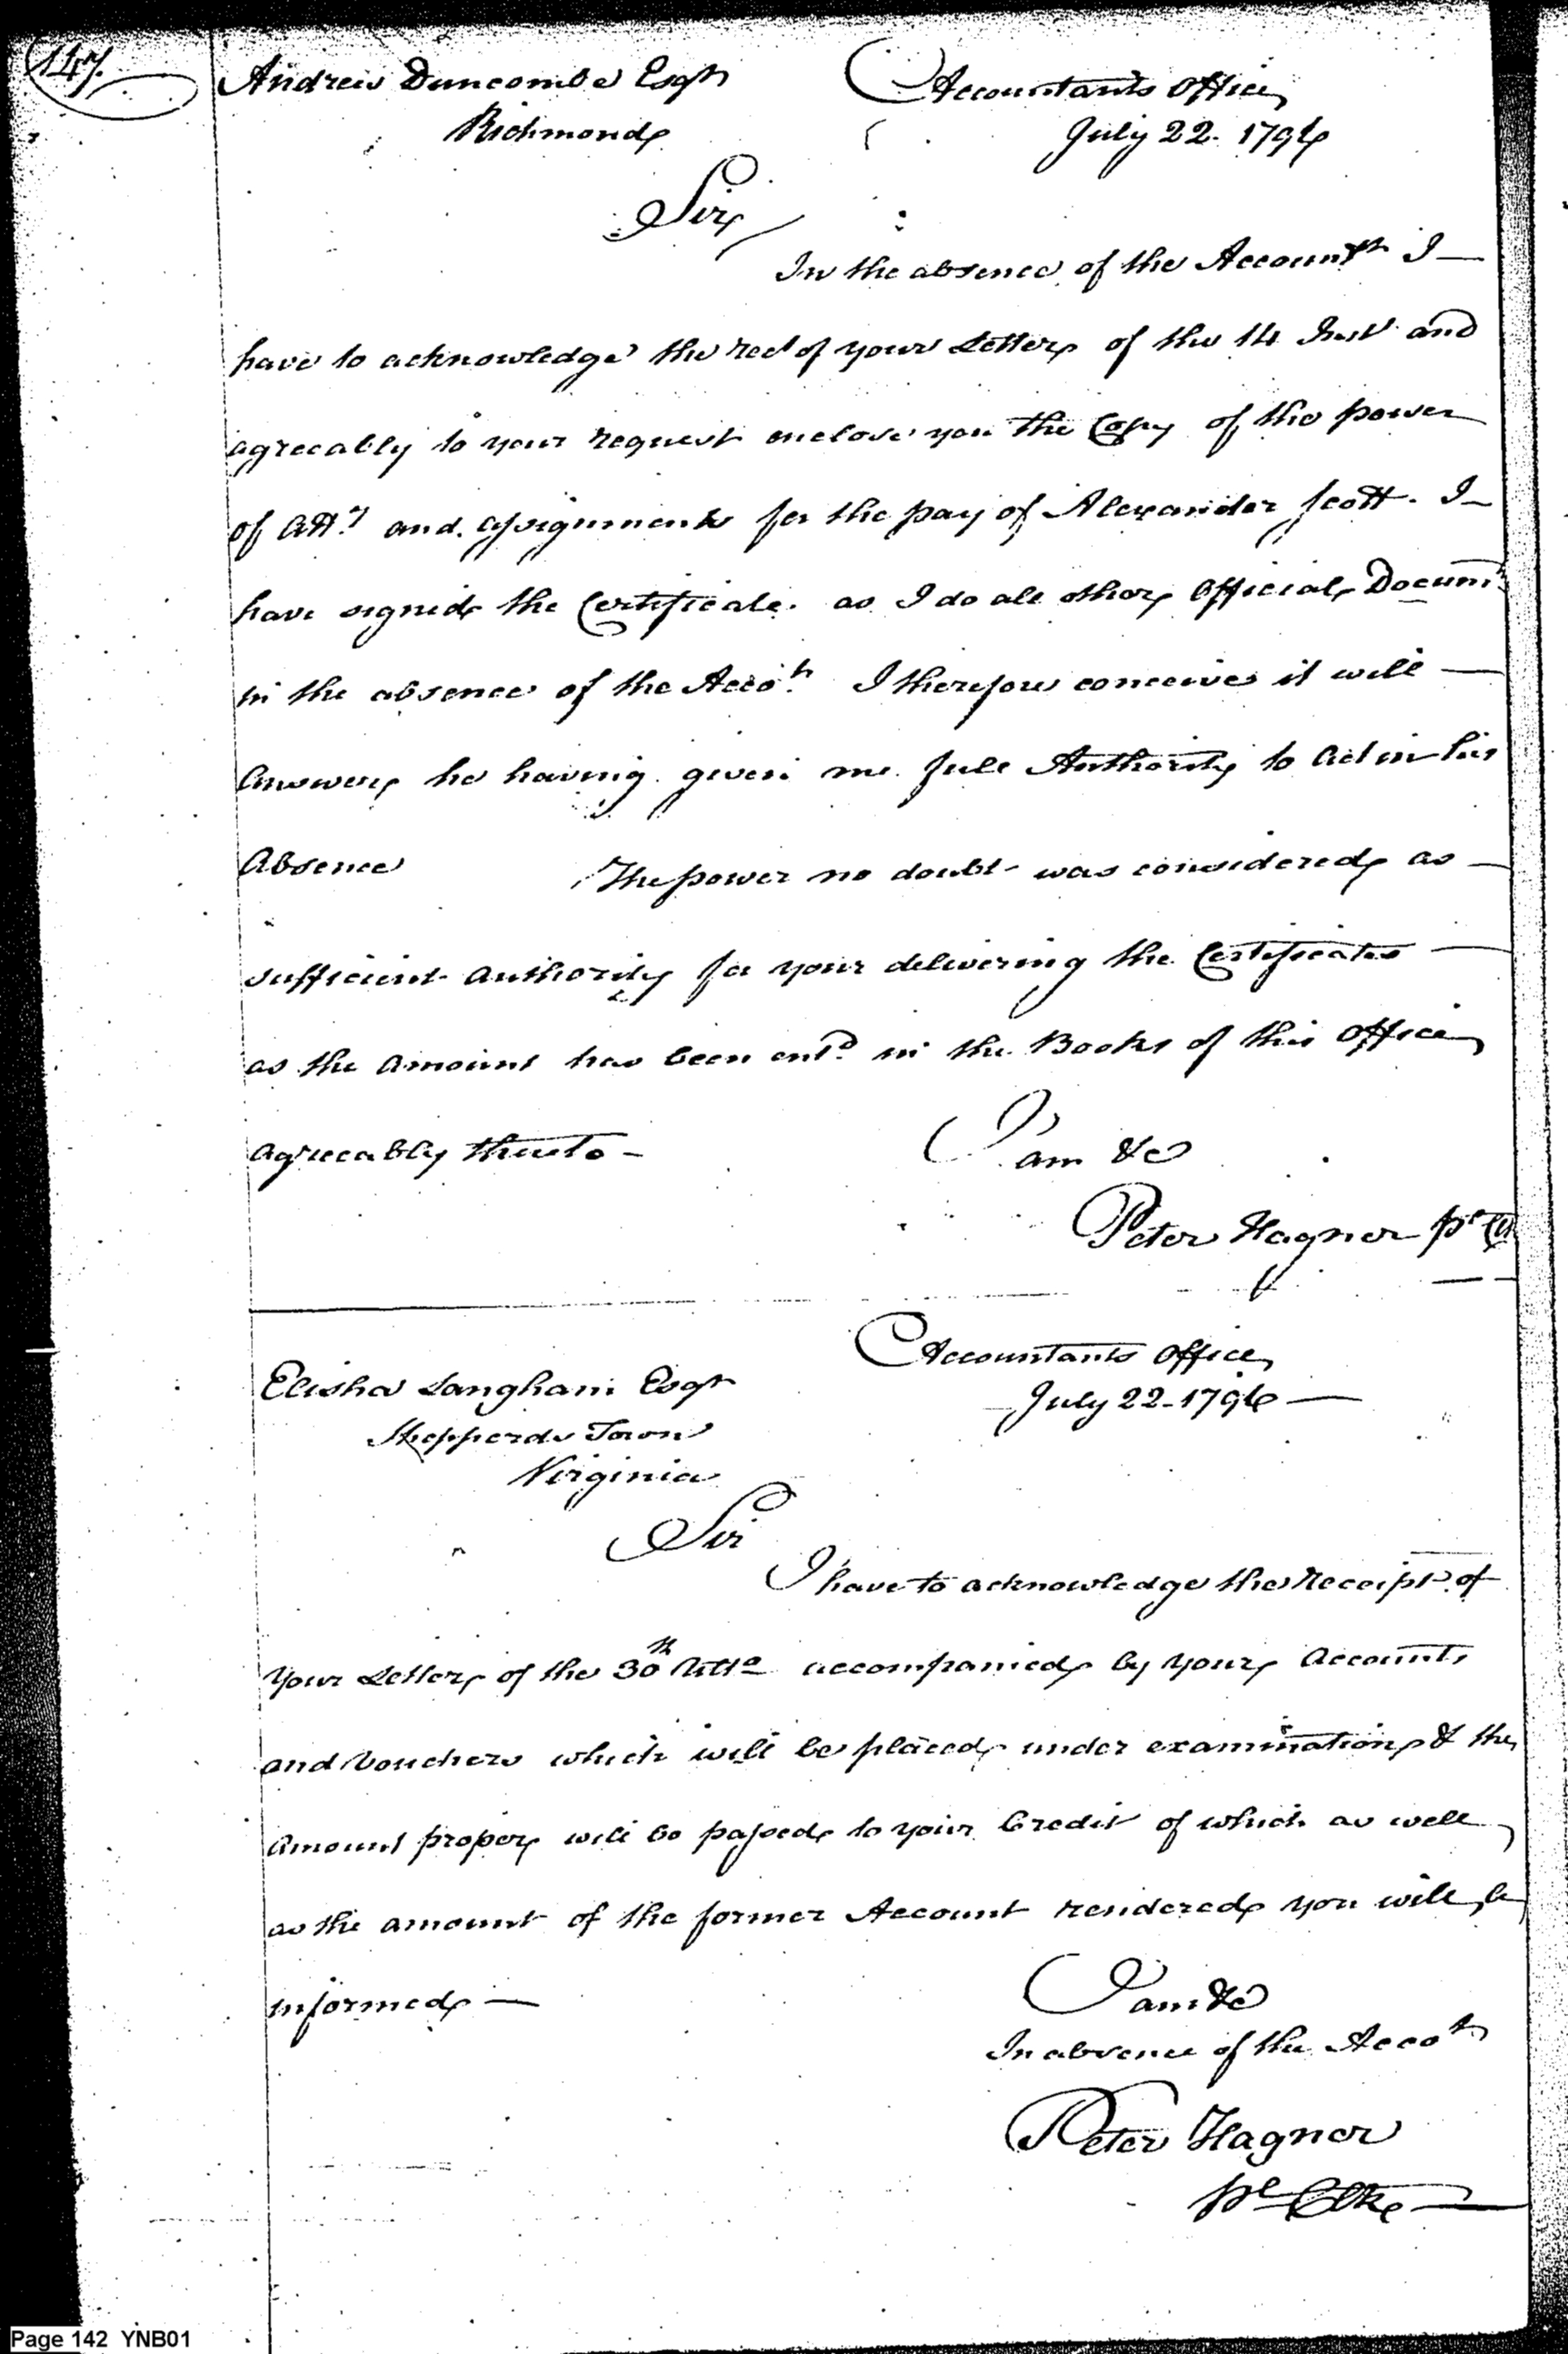 147.
Andrew Duncombe Esqr
Richmond
Accountants Office
July 22. 1796
Sir
In the absence of the Accountt I
have to acknowledge the rect of your Letter of the 14 Inst and
agreeably to your request enclose you the Copy of the power
of Atty and assignments for the pay of Alexander Scott. I
have signed the Certificate. as I do all other Official Documts
in the absence of the Accot. I therefore conceive it will
answer, he having given me full Authority to act in his
Absence The power no doubt was considered as
sufficient authority for your delivering the Certificates
as the amount has been entd in the Books of this Office
agreeably thereto –
I am &c
Peter Hagner pl
Elisha Langham Esqr
Shepperds Town
Virginia
Accountants Office
July 22 - 1796
Sir
I have to acknowledge the receipt of
Your Letter of the 30th Ulto accompanied by your Accounts
and Vouchers which will be placed under examination & the
amount proper will be passed to your Credit of which as well
as the amount of the former Account rendered you will be
informed —
I am &c
In absence of the Accot
Peter Hagner
pl Clke
Page 142 YNB01